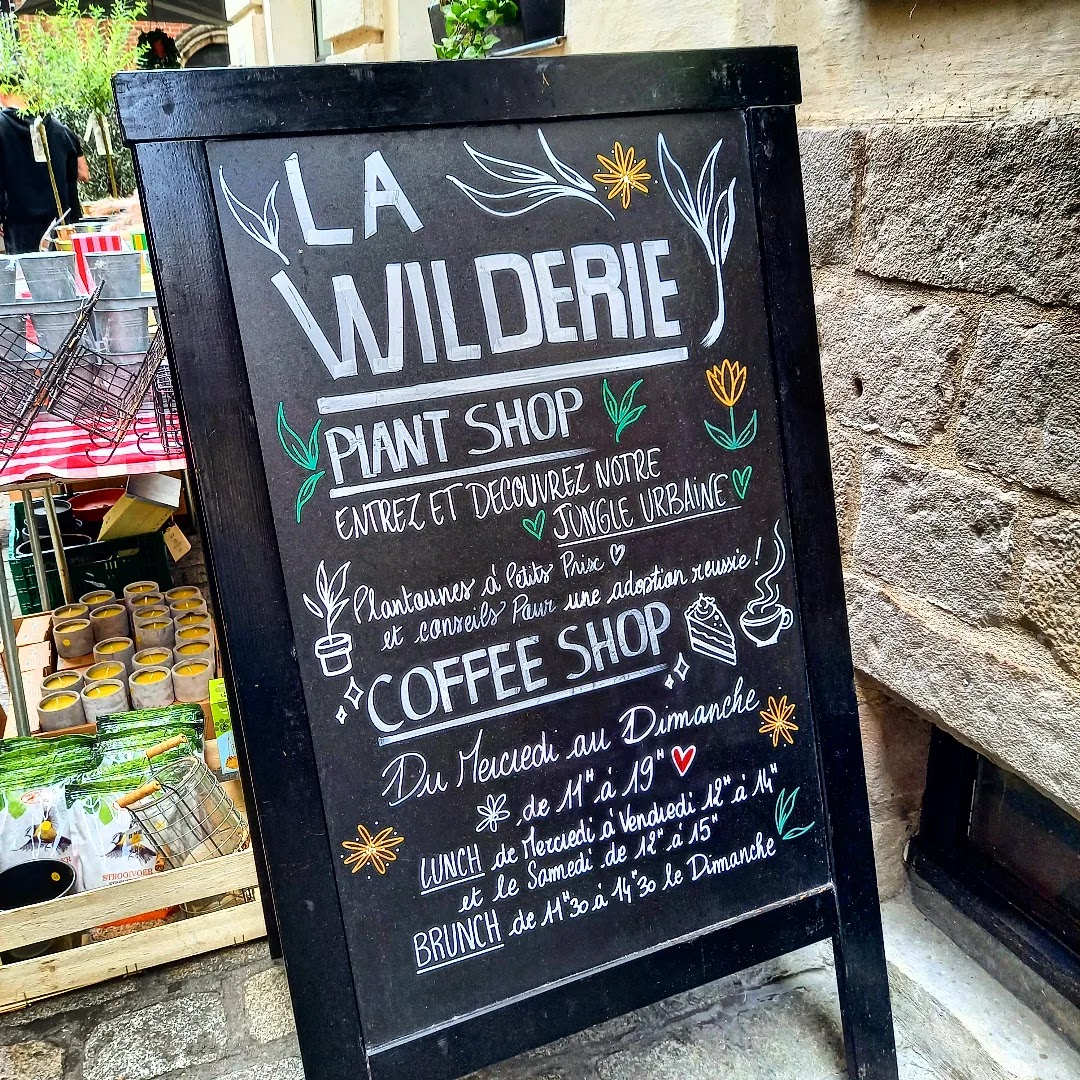 LA
WILDERIE
PLANT SHOP
ENTREZ ET DECOUVREZ NOTRE
JUNGLE URBAINE
Plantounes à Petits Prix
et conseils Pour une adoption reussie !
COFFEE SHOP
Du Mercredi au Dimanche
de 11H à 19H
LUNCH de Mercredi à Vendredi 12H à 14H
et le Samedi de 12H à 15H
BRUNCH de 11H30 à 14H30 le Dimanche
STROOIVOER